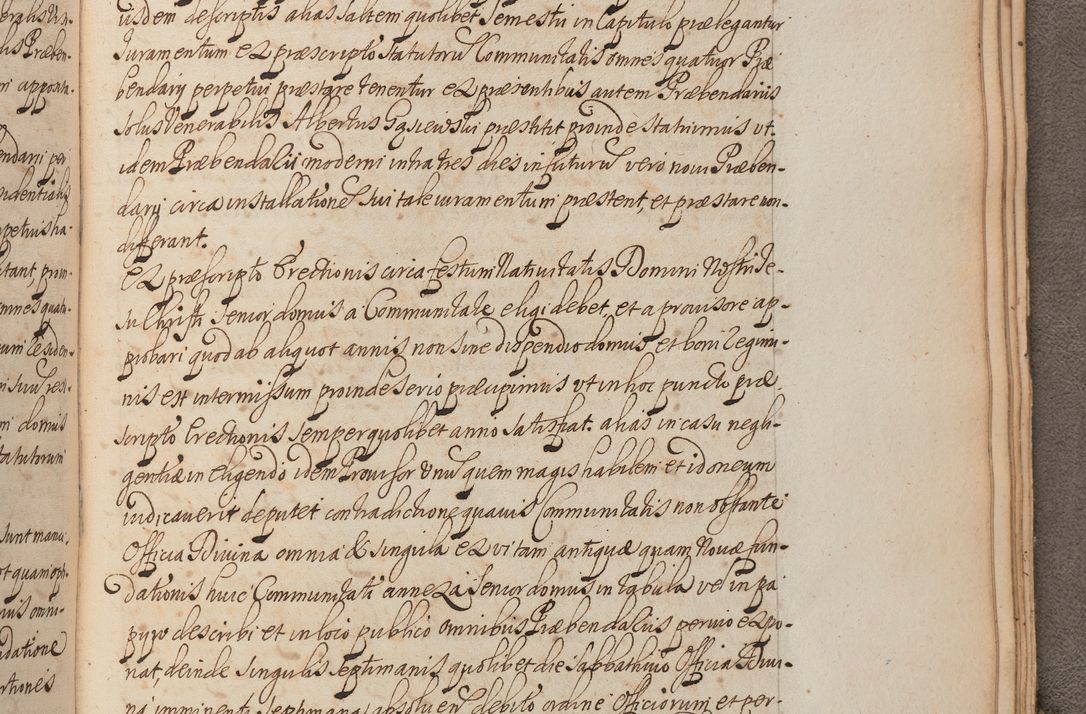 usdem descriptis alias saltem quolibet semestri in Capitulo prælegantur
Juramentum ex præscripto statutorũ Communitatis omnes quatuor Præ
bendarij perpetui præstare tenentur ex præsentibus autem Præbendariis
solus Venerabilis Albertus Gąsiewski præstitit proinde statuimus vt
idem Præbendarii moderni intra tres dies in futurũ vero novi Præben-
darij circa installationẽ sui tale iuramentum præstent, et præstare non
differant.
Ex præscripto Erectionis circa festum Nativitatis Domini Nostri Je-
su Christi senior domus a Communitate eligi debet, et a provisore ap-
probari quod ab aliquot annis non sine dispendio domus et boni Regimi-
nis est intermissum proinde serio præcipimus vt in hoc puncto præ
scripto Erectionis semper quolibet anno satisfiat. alias in casu negli-
gentiæ in eligendo idem Provisor vnũ quem magis habilem et idoneum
iudicaverit deputet contradictione quavis Communitatis non obstante
Officia Divina omnia & singula ex vi tam antiquæ quam Novæ fun-
dationis huic Communitati annexa senior domus in tabula vel in pa
pyro describi et in loco publico omnibus Præbendariis pervio expo-
nat, deinde singulis septimanis quolibet die sabbathivo Officia Divi-
na imminenti septimana absolvenda debito ordine Officiorum et per-
eralis
lis Præben-
ri apposita-
endarii per
identialis
rpetuis ha-
tant, prom-
omnes quatu-
um Residen-
m domus
statutorum
sunt manu-
nis omni-
ndatione
rtiones